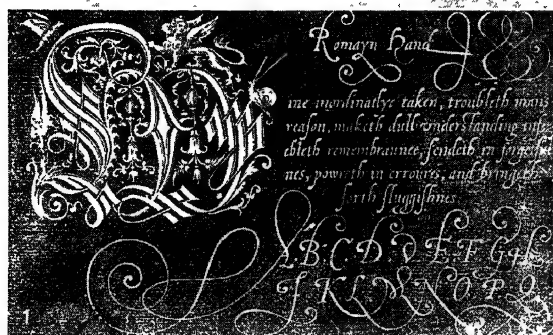 Romayn Hand
W
ine inordinatlye taken, troubleth mans
reason, maketh dull vnderstanding infe
ebleth remembraunce, sendeth in forgetful
nes, powreth in erroures, and bringeth
forth sluggishnes
A.B.C.D. E.F.G.H.
I.K.L.M.N.O.P.Q.
1